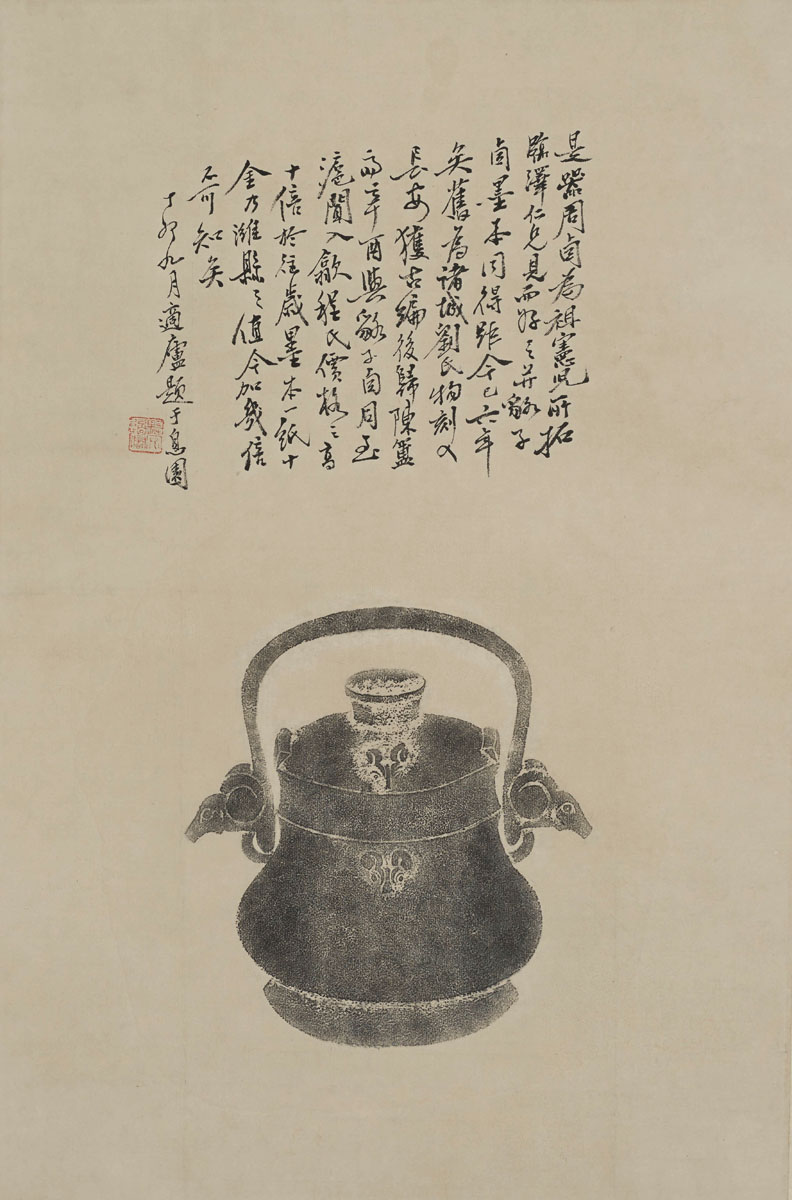 是器周卣為祖憲兄所拓
臨澤仁兄見而好之并豀子
卣墨本同得距今已六年
矣舊為諸城劉氏物刻入
長安獲古編後歸陳簠
齋辛酉與豀子卣同至
滬聞入歙程氏價格之高
十倍於往歲墨本一紙十
金乃濰縣之值今加幾倍
不可知矣
丁卯九月適廬題于息園